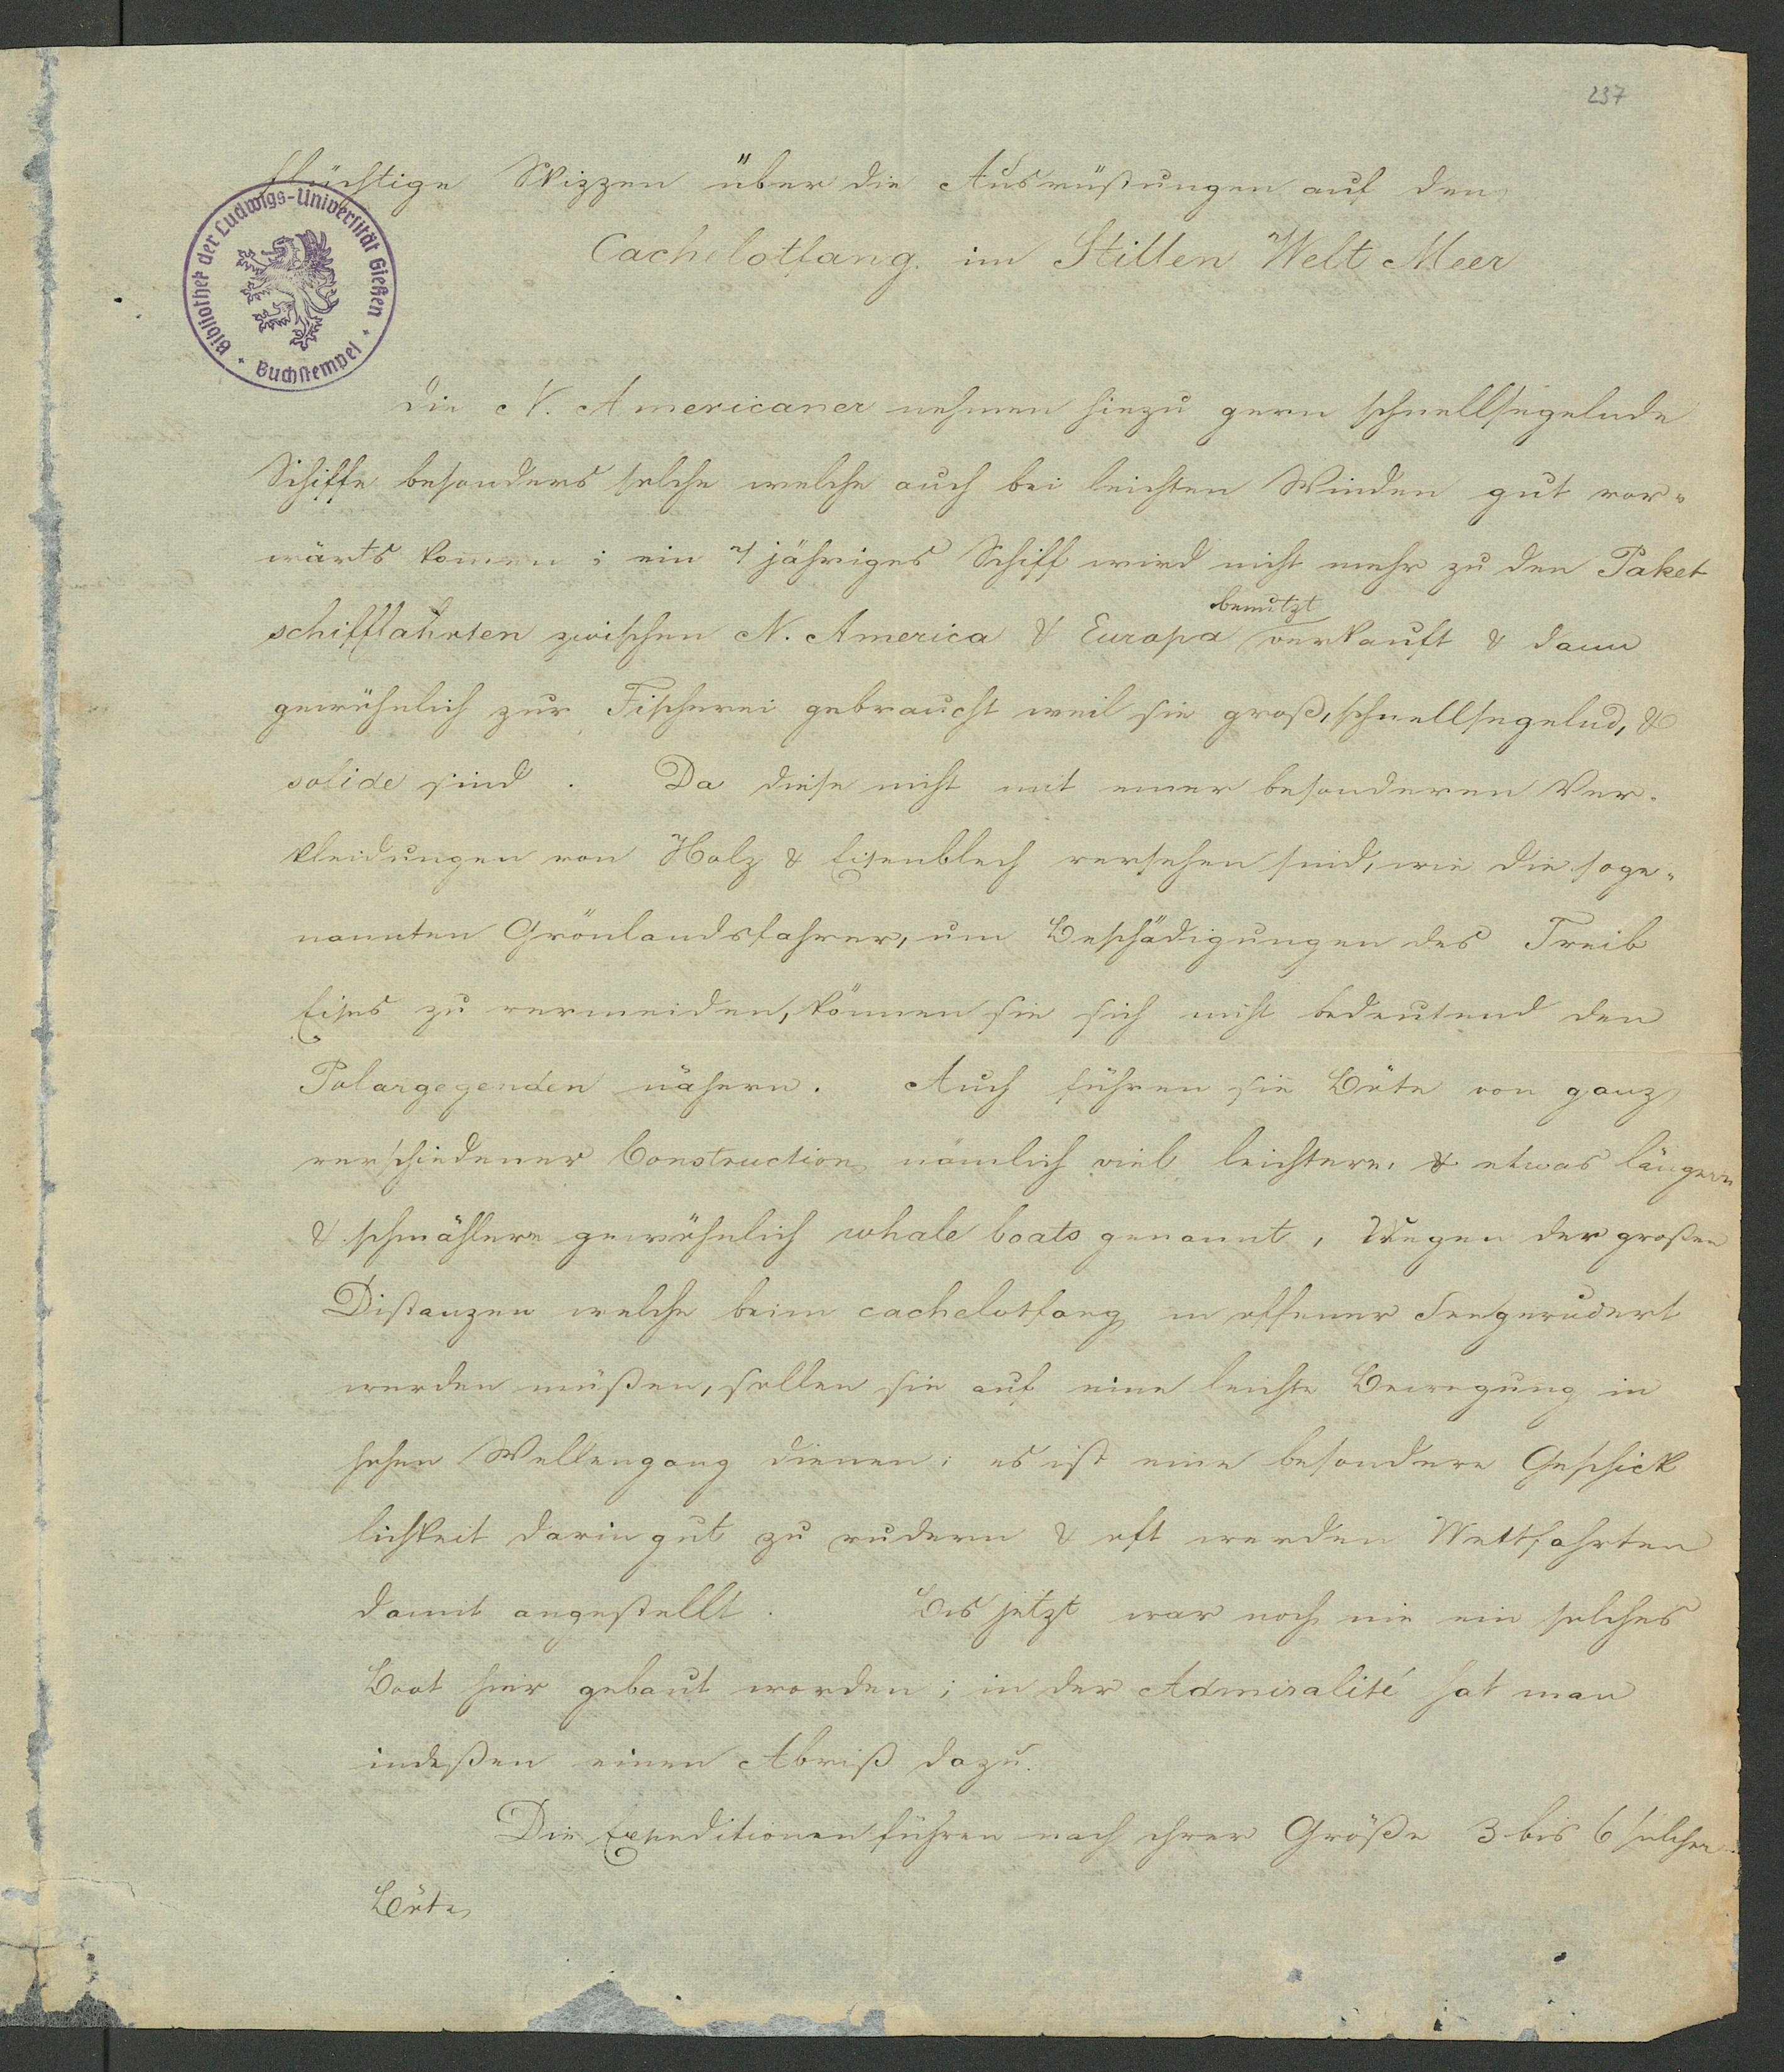 237
Flüchtige Skizzen über die Ausrüstungen auf den
Cachelotfang im Stillen Welt Meer
Bibliothek der Ludwigs-Universität Gießen
Buchstempel
Die N. Americaner nehmen hiezu gern schnellsegelnde
Schiffe besonders solche welche auch bei leichten Winden gut vor-
wärts komen; ein 7 jähriges Schiff wird nicht mehr zu den Paket
benutzt
schifffahrten zwischen N. America & Europa verkauft & dann
gewöhnlich zur Fischerei gebraucht weil sie groß, schnellsegelnd, &
solide sind. Da diese nicht mit einer besonderen Ver-
kleidungen von Holz & Eisenblech versehen sind, wie die soge-
nannten Grönlandsfahrer, um Beschädigungen des Treib
Eises zu vermeiden, können sie sich nicht bedeutend den
Polargegenden nähern. Auch führen sie Böte von ganz
verschiedener Construction nämlich viel leichtere, & etwas längere
& schmählere gewöhnlich whale boats genannt, Wegen der großen
Distanzen welche beim cachelotfang in offener See gerudert
werden müßen, sollen sie auf eine leichte Bewegung in
hohen Wellengang dienen; es ist eine besondere Geschick
lichkeit darin gut zu rudern & oft werden Wettfahrten
damit angestellt. Bis jetzt war noch nie ein solches
Boot hier gebaut worden; in der Admiralité hat man
indeßen einen Abriß dazu.
Die Expeditionen führen nach ihrer Größe 3 bis 6 solcher
Böte